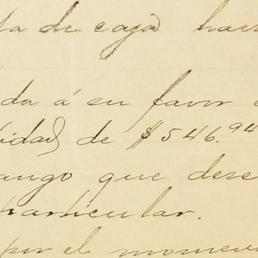 ta de caja has
da á su favor
tidad de $546.94
ango que dese
particular.
por el momen